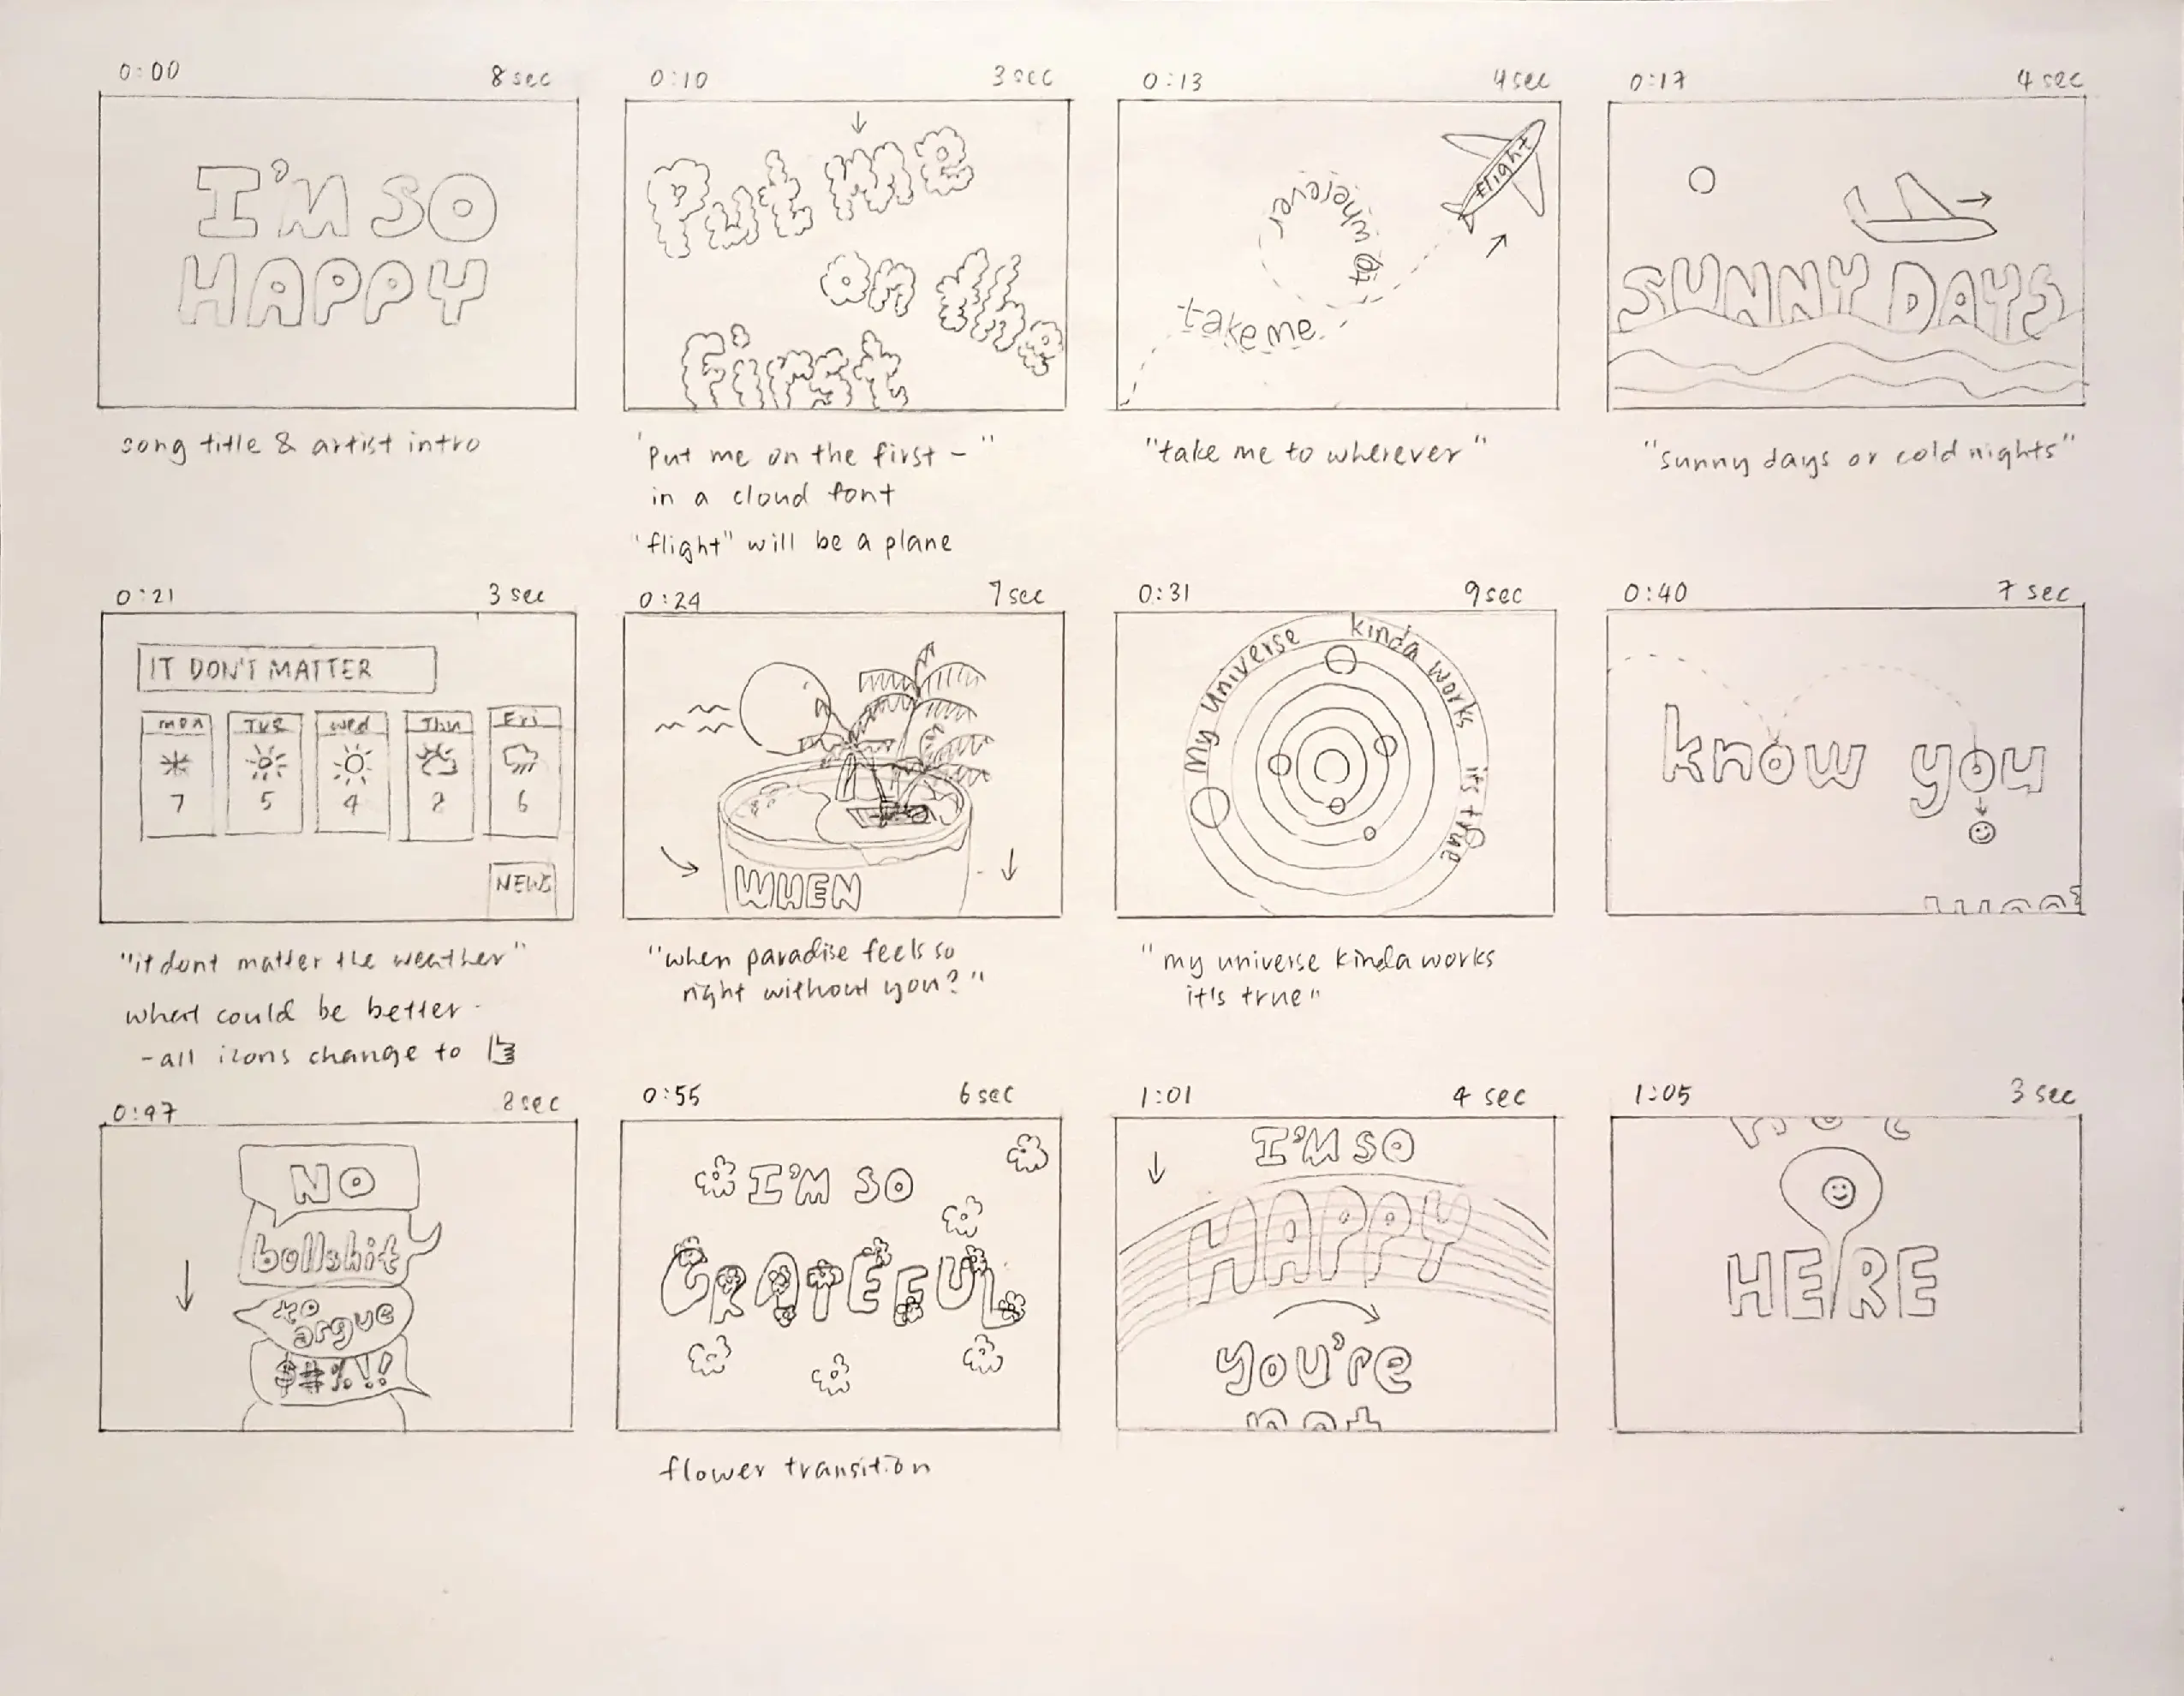 0:00 8 sec
I'M SO
HAPPY
song title & artist intro
0:10 3 sec
Put me
on the
First
'Put me on the first – "
in a cloud font
"flight" will be a plane
0:13 4 sec
take me
to wherever
flight
"take me to wherever"
0:17 4 sec
SUNNY DAYS
"sunny days or cold nights"
0:21 3 sec
IT DON'T MATTER
mon TUE wed Thu Fri
7 5 4 2 6
NEWS
"it dont matter the weather"
what could be better -
- all icons change to
0:24 7 sec
WHEN
"when paradise feels so
right without you?"
0:31 9 sec
My Universe kinda works it's true
"my universe kinda works
it's true"
0:40 7 sec
know you
0:47 8 sec
NO
bullshit
to
argue
$#%!!
0:55 6 sec
I'M SO
GRATEFUL
flower transition
1:01 4 sec
I'M SO
HAPPY
you're
not
1:05 3 sec
HERE